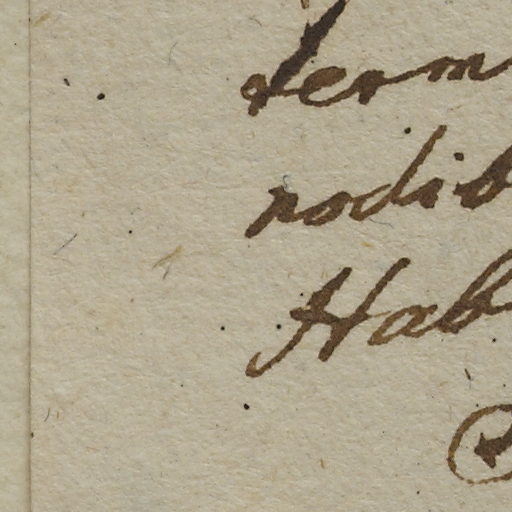 term
nodib
Hab